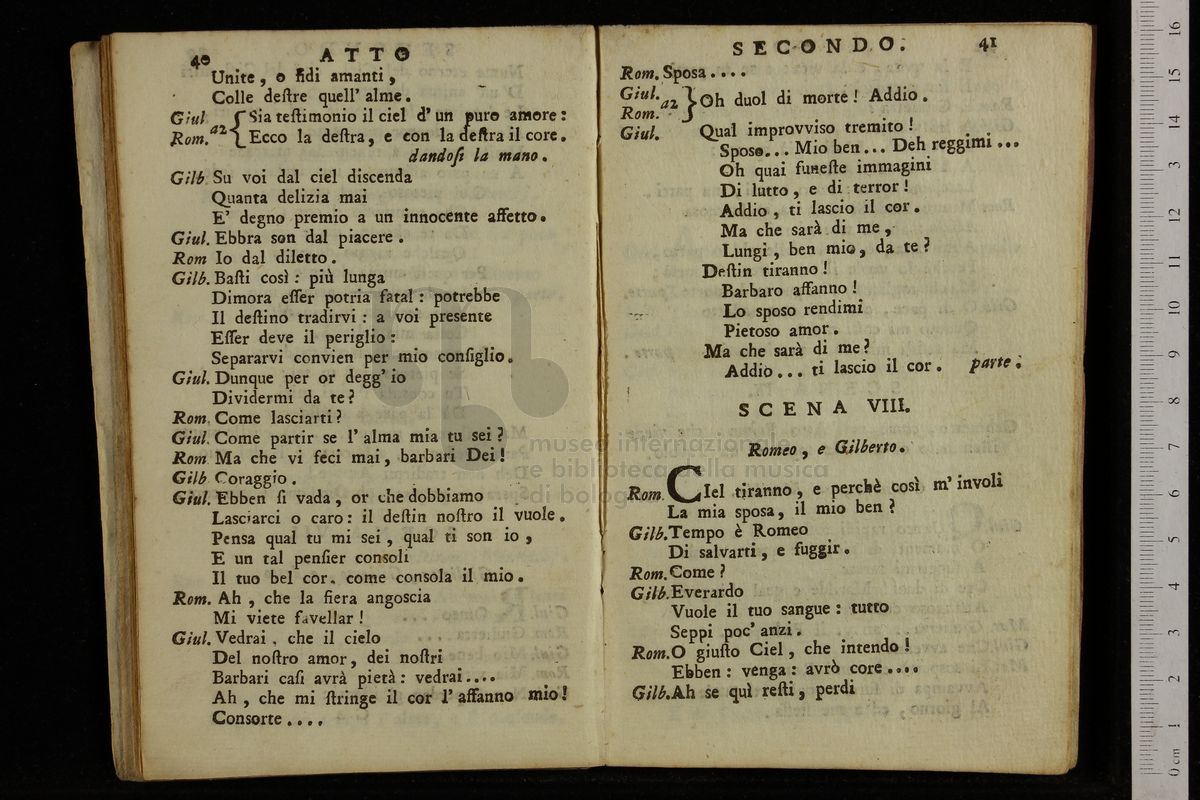 40 ATTO
Unite, o fidi amanti,
Colle deſtre quell' alme.
Giul Sia teſtimonio il ciel d' un puro amore:
Rom. a2 Ecco la deſtra, e con la deſtra il core.
dandoſi la mano.
Gilb Su voi dal ciel discenda
Quanta delizia mai
E' degno premio a un innocente affetto.
Giul. Ebbra son dal piacere.
Rom Io dal diletto.
Gilb. Baſti così: più lunga
Dimora eſſer potria fatal: potrebbe
Il deſtino tradirvi: a voi presente
Eſſer deve il periglio:
Separarvi convien per mio conſiglio.
Giul. Dunque per or degg' io
Dividermi da te?
Rom. Come lasciarti?
Giul. Come partir se l' alma mia tu sei?
Rom Ma che vi feci mai, barbari Dei!
Gilb Coraggio.
Giul. Ebben ſi vada, or che dobbiamo
Lasciarci o caro: il deſtin noſtro il vuole.
Pensa qual tu mi sei, qual ti son io,
E un tal penſier consoli
Il tuo bel cor, come consola il mio.
Rom. Ah, che la fiera angoscia
Mi viete favellar!
Giul. Vedrai, che il cielo
Del noſtro amor, dei noſtri
Barbari caſi avrà pietà: vedrai....
Ah, che mi ſtringe il cor l' affanno mio!
Consorte....
SECONDO. 41
Rom. Sposa....
Giul. a2 Oh duol di morte! Addio.
Rom.
Giul. Qual improvviso tremito!
Sposo... Mio ben... Deh reggimi...
Oh quai funeſte immagini
Di lutto, e di terror!
Addio, ti lascio il cor.
Ma che sarà di me,
Lungi, ben mio, da te?
Deſtin tiranno!
Barbaro affanno!
Lo sposo rendimi
Pietoso amor.
Ma che sarà di me?
Addio... ti lascio il cor. parte.
SCENA VIII.
Romeo, e Gilberto.
Rom. CIel tiranno, e perchè così m' involi
La mia sposa, il mio ben?
Gilb. Tempo è Romeo
Di salvarti, e fuggir.
Rom. Come?
Gilb. Everardo
Vuole il tuo sangue: tutto
Seppi poc' anzi.
Rom. O giuſto Ciel, che intendo!
Ebben: venga: avrò core....
Gilb. Ah se quì reſti, perdi
museo internazionale
e biblioteca della musica
di bologna
0 cm 1 2 3 4 5 6 7 8 9 10 11 12 13 14 15 16